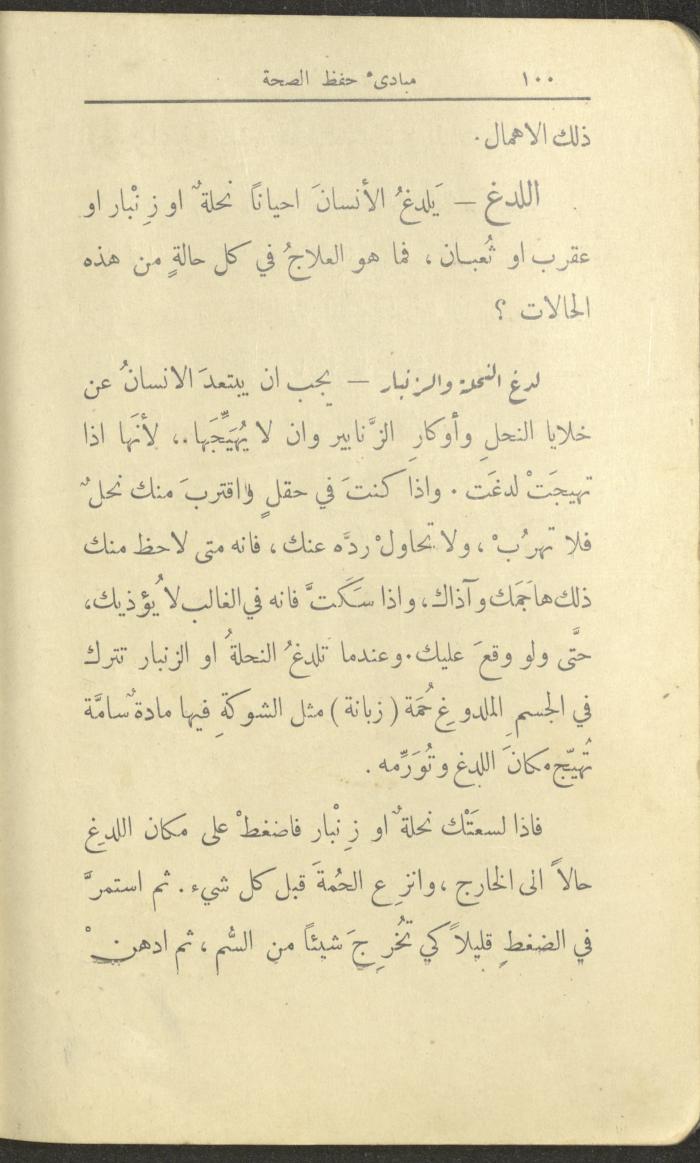 ١٠٠ مبادىء حفظ الصحة
ذلك الاهمال.
اللدغ – يَلدغُ الأنسانَ احياناً نحلةٌ او زِنْبار او
عقرب او ثُعبان ، فما هو العلاجُ في كل حالةٍ من هذه
الحالات ؟
لدغ النحلة والزنبار – يجب ان يبتعدَ الانسانُ عن
خلايا النحلِ وأوكارِ الزَّنابير وان لا يُهَيِّجَها .، لأنَها اذا
تهيجَتْ لدغَت . واذا كنتَ في حقلٍ واقتربَ منك نحلٌ
فلا تهرُبْ ، ولا تحاولْ ردَّه عنك ، فانه متى لاحظ منك
ذلك هاجَمَك وآذاك ، واذا سَكَتَّ فانه في الغالب لا يُؤذيك ،
حتَّى ولو وقعَ عليك . وعندما تلدغُ النحلةُ او الزنبار تترك
في الجسمِ الملدوغِ حُمَة ( زبانة ) مثل الشوكةِ فيها مادةٌ سامَّة
تُهيّج مكانَ اللدغ وتُوَرِّمه .
فاذا لسعَتْك نحلةٌ او زِنْبار فاضغطْ على مكان اللدغِ
حالاً الى الخارج ، وانزِع الحُمةَ قبل كل شيء . ثم استمرَّ
في الضغطِ قليلاً كي تُخرِجَ شيئاً من السُّم ، ثم ادهنْ